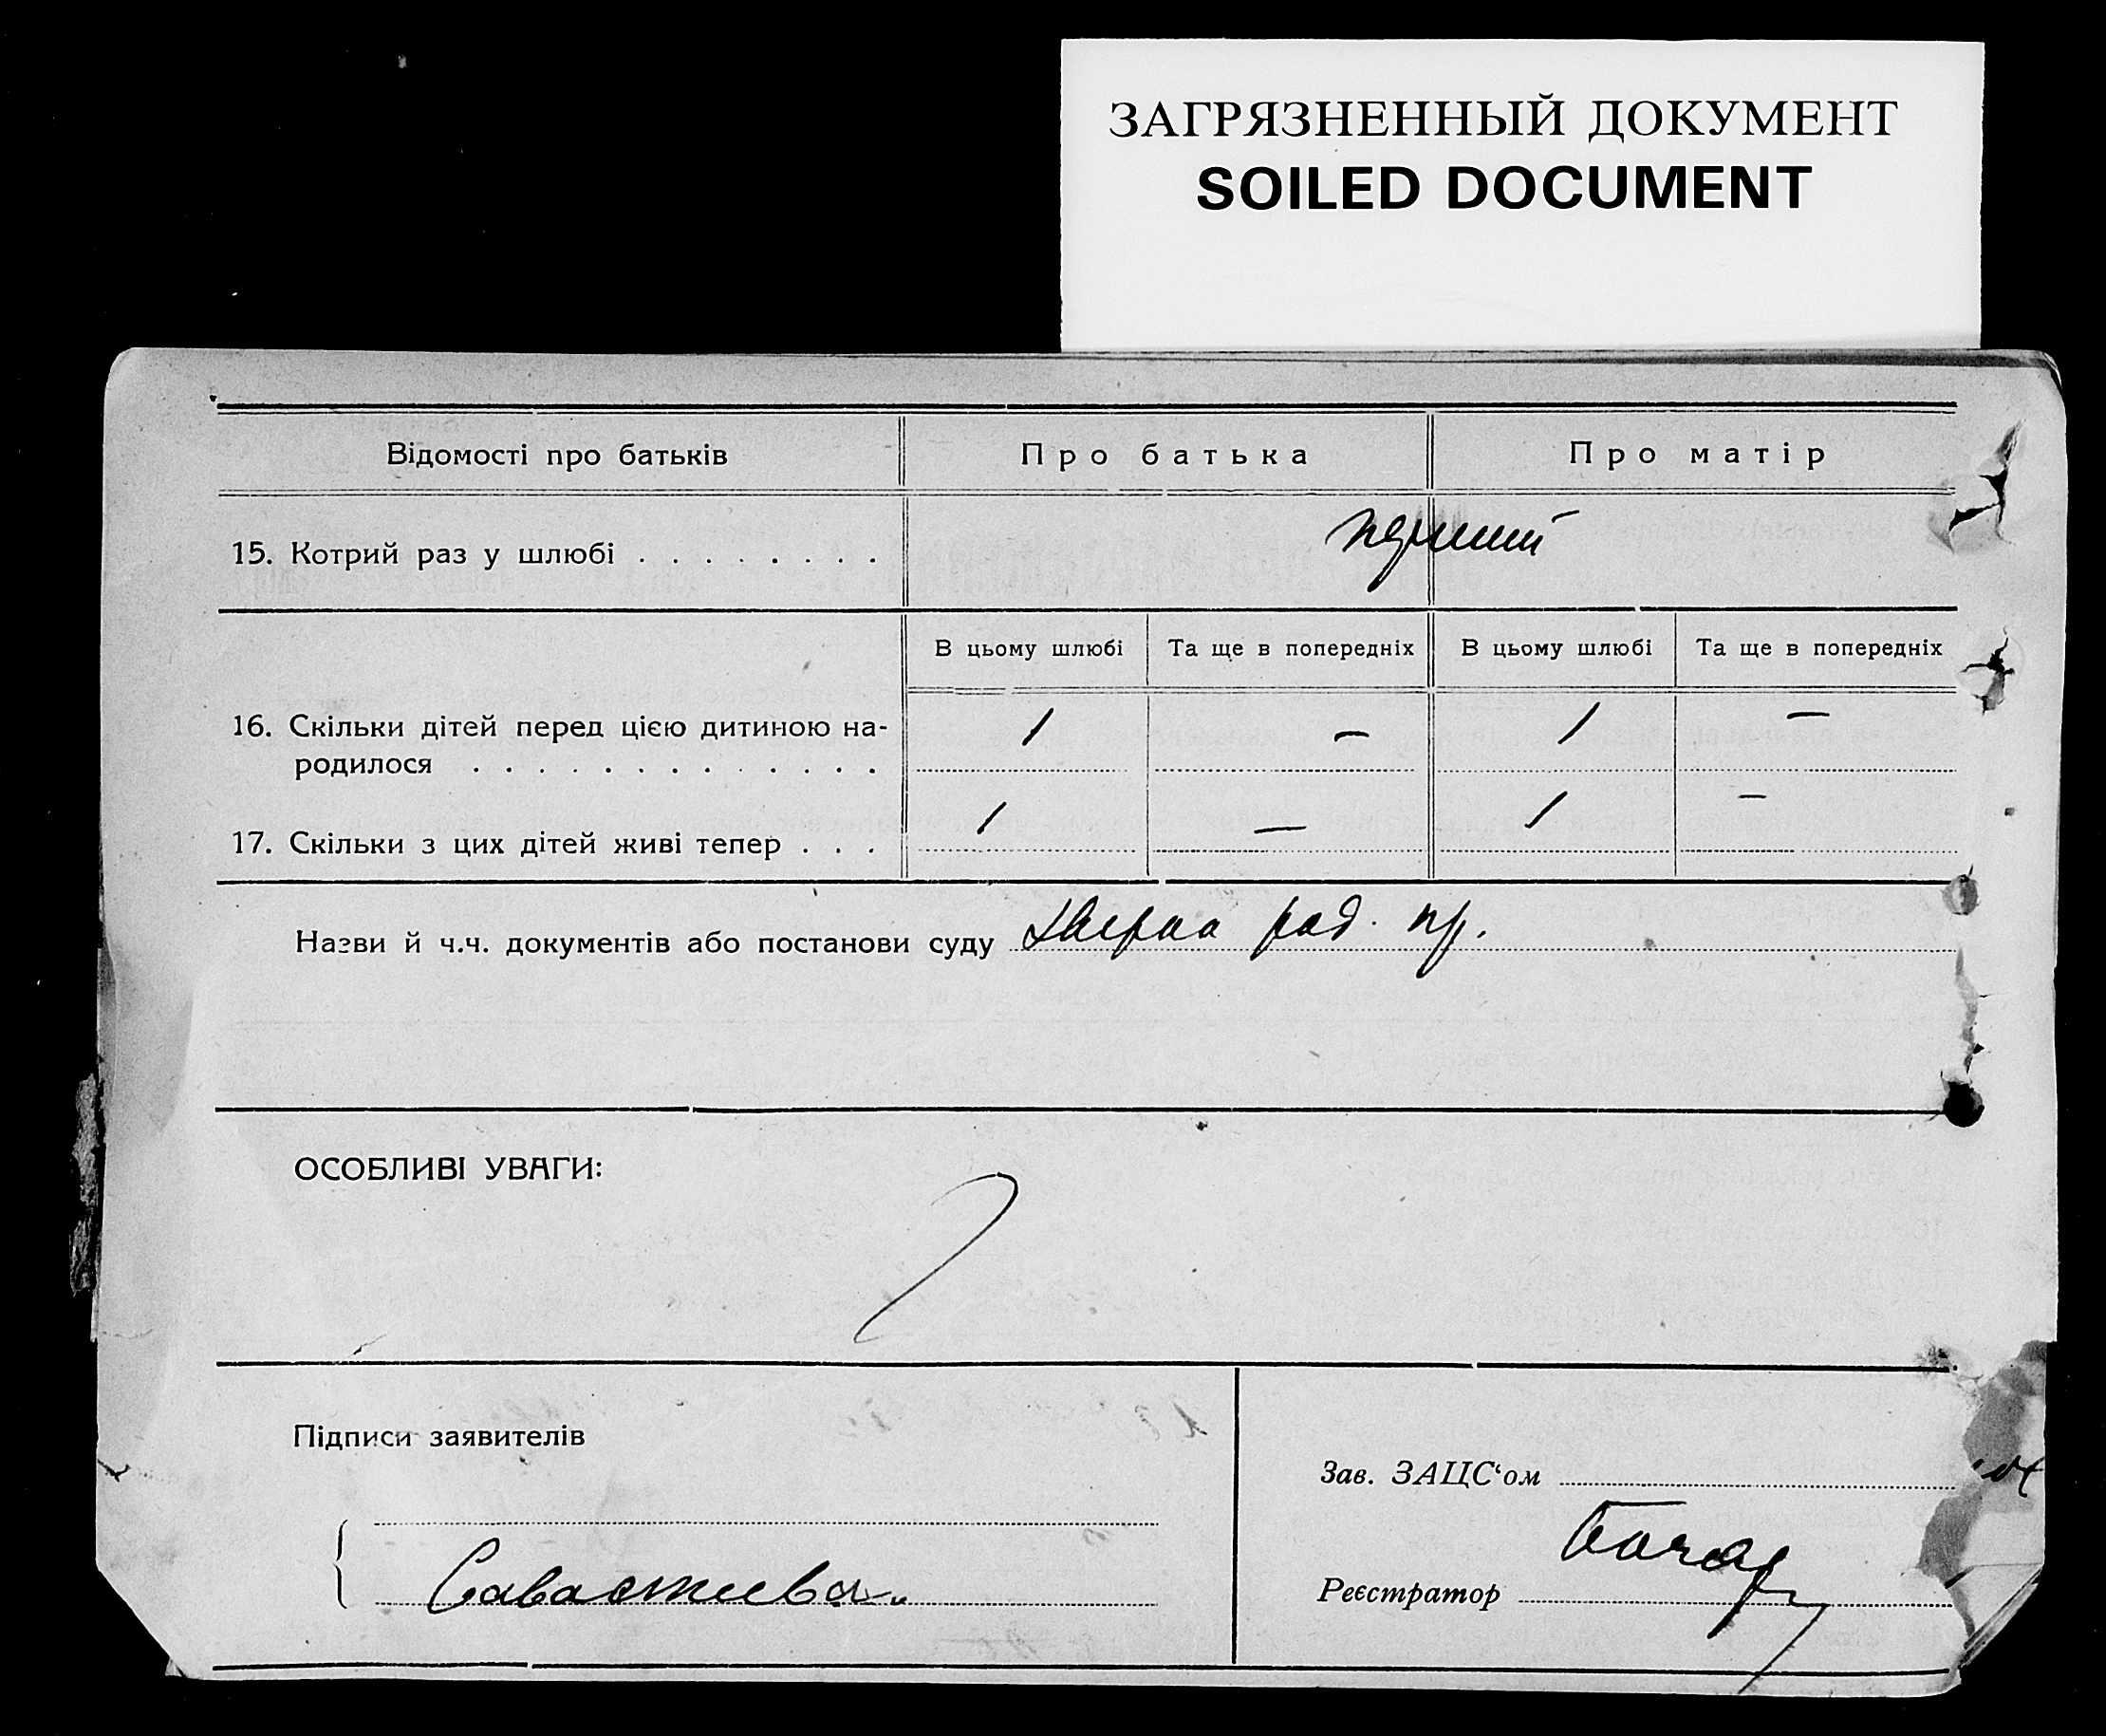 ЗАГРЯЗНЕННЫЙ ДОКУМЕНТ
SOILED DOCUMENT
Відомості про батьків Про батька Про матір
15. Котрий раз у шлюбі . . . . . . . . перший
В цьому шлюбі Та ще в попередніх В цьому шлюбі Та ще в попередніх
16. Скільки дітей перед цією дитиною на-
родилося . . . . . . . . . . . . . 1 — 1 —
17. Скільки з цих дітей живі тепер . . . 1 — 1 —
Назви й ч.ч. документів або постанови суду рад. пр.
ОСОБЛИВІ УВАГИ:
Підписи заявителів
Зав. ЗАЦС‘ом
Реєстратор